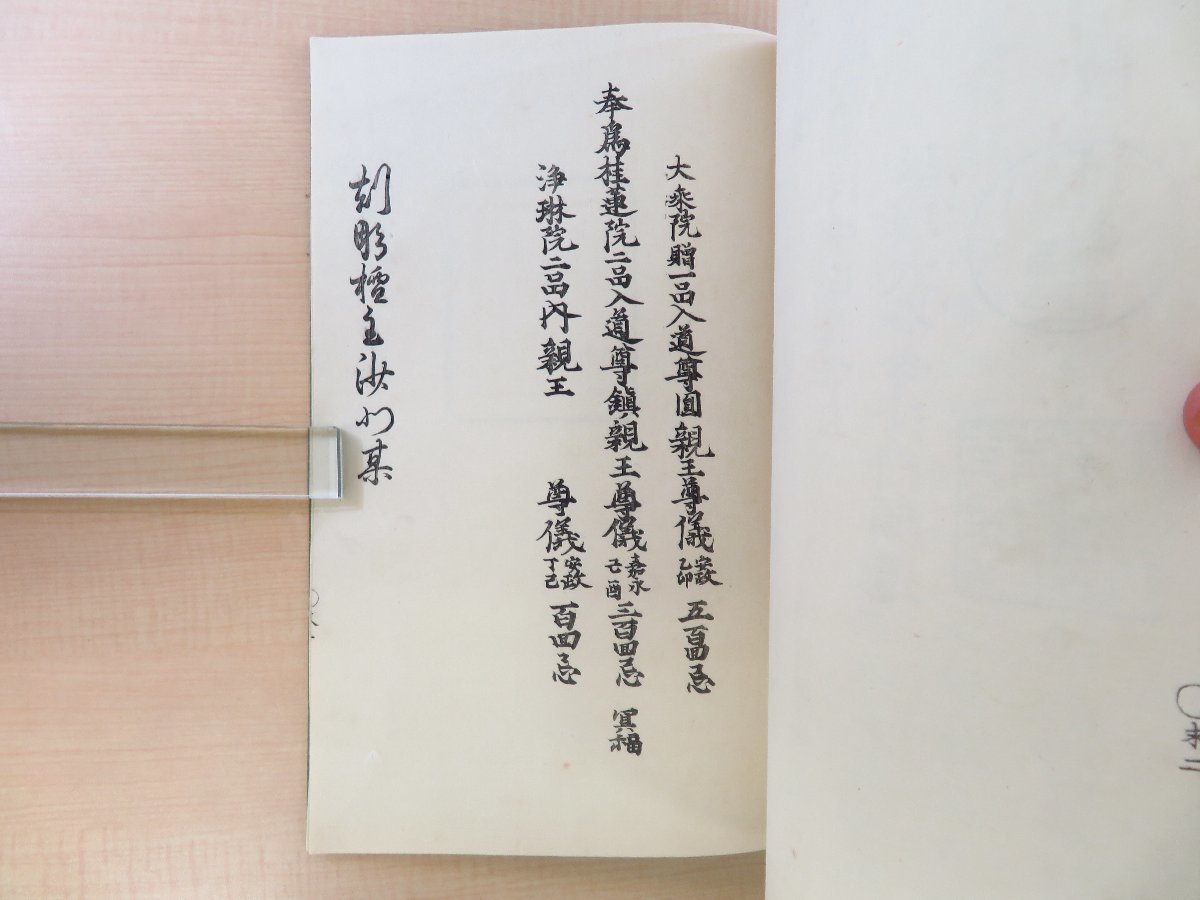 大乗院贈一品入道尊圓親王尊儀安政乙卯五百回忌
奉爲桂蓮院二品入道尊鎮親王尊儀嘉永己酉三百回忌冥福
浄琳院二品内親王尊儀安政丁巳百回忌
刻彫檀主 某
末二